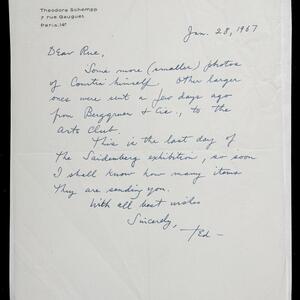 Theodore Schempp
7 rue Gauguet
Paris.14e
Jan. 28, 1967
Dear Rue,
Some more (smaller) photos
of Courtin himself. Other larger
ones were sent a few days ago
from Berggruen & Cie, to the
Arts Club.
This is the last day of
the Saidenberg exhibition, so soon
I shall know how many items
they are sending you.
With all best wishes
Sincerely,
Ted —